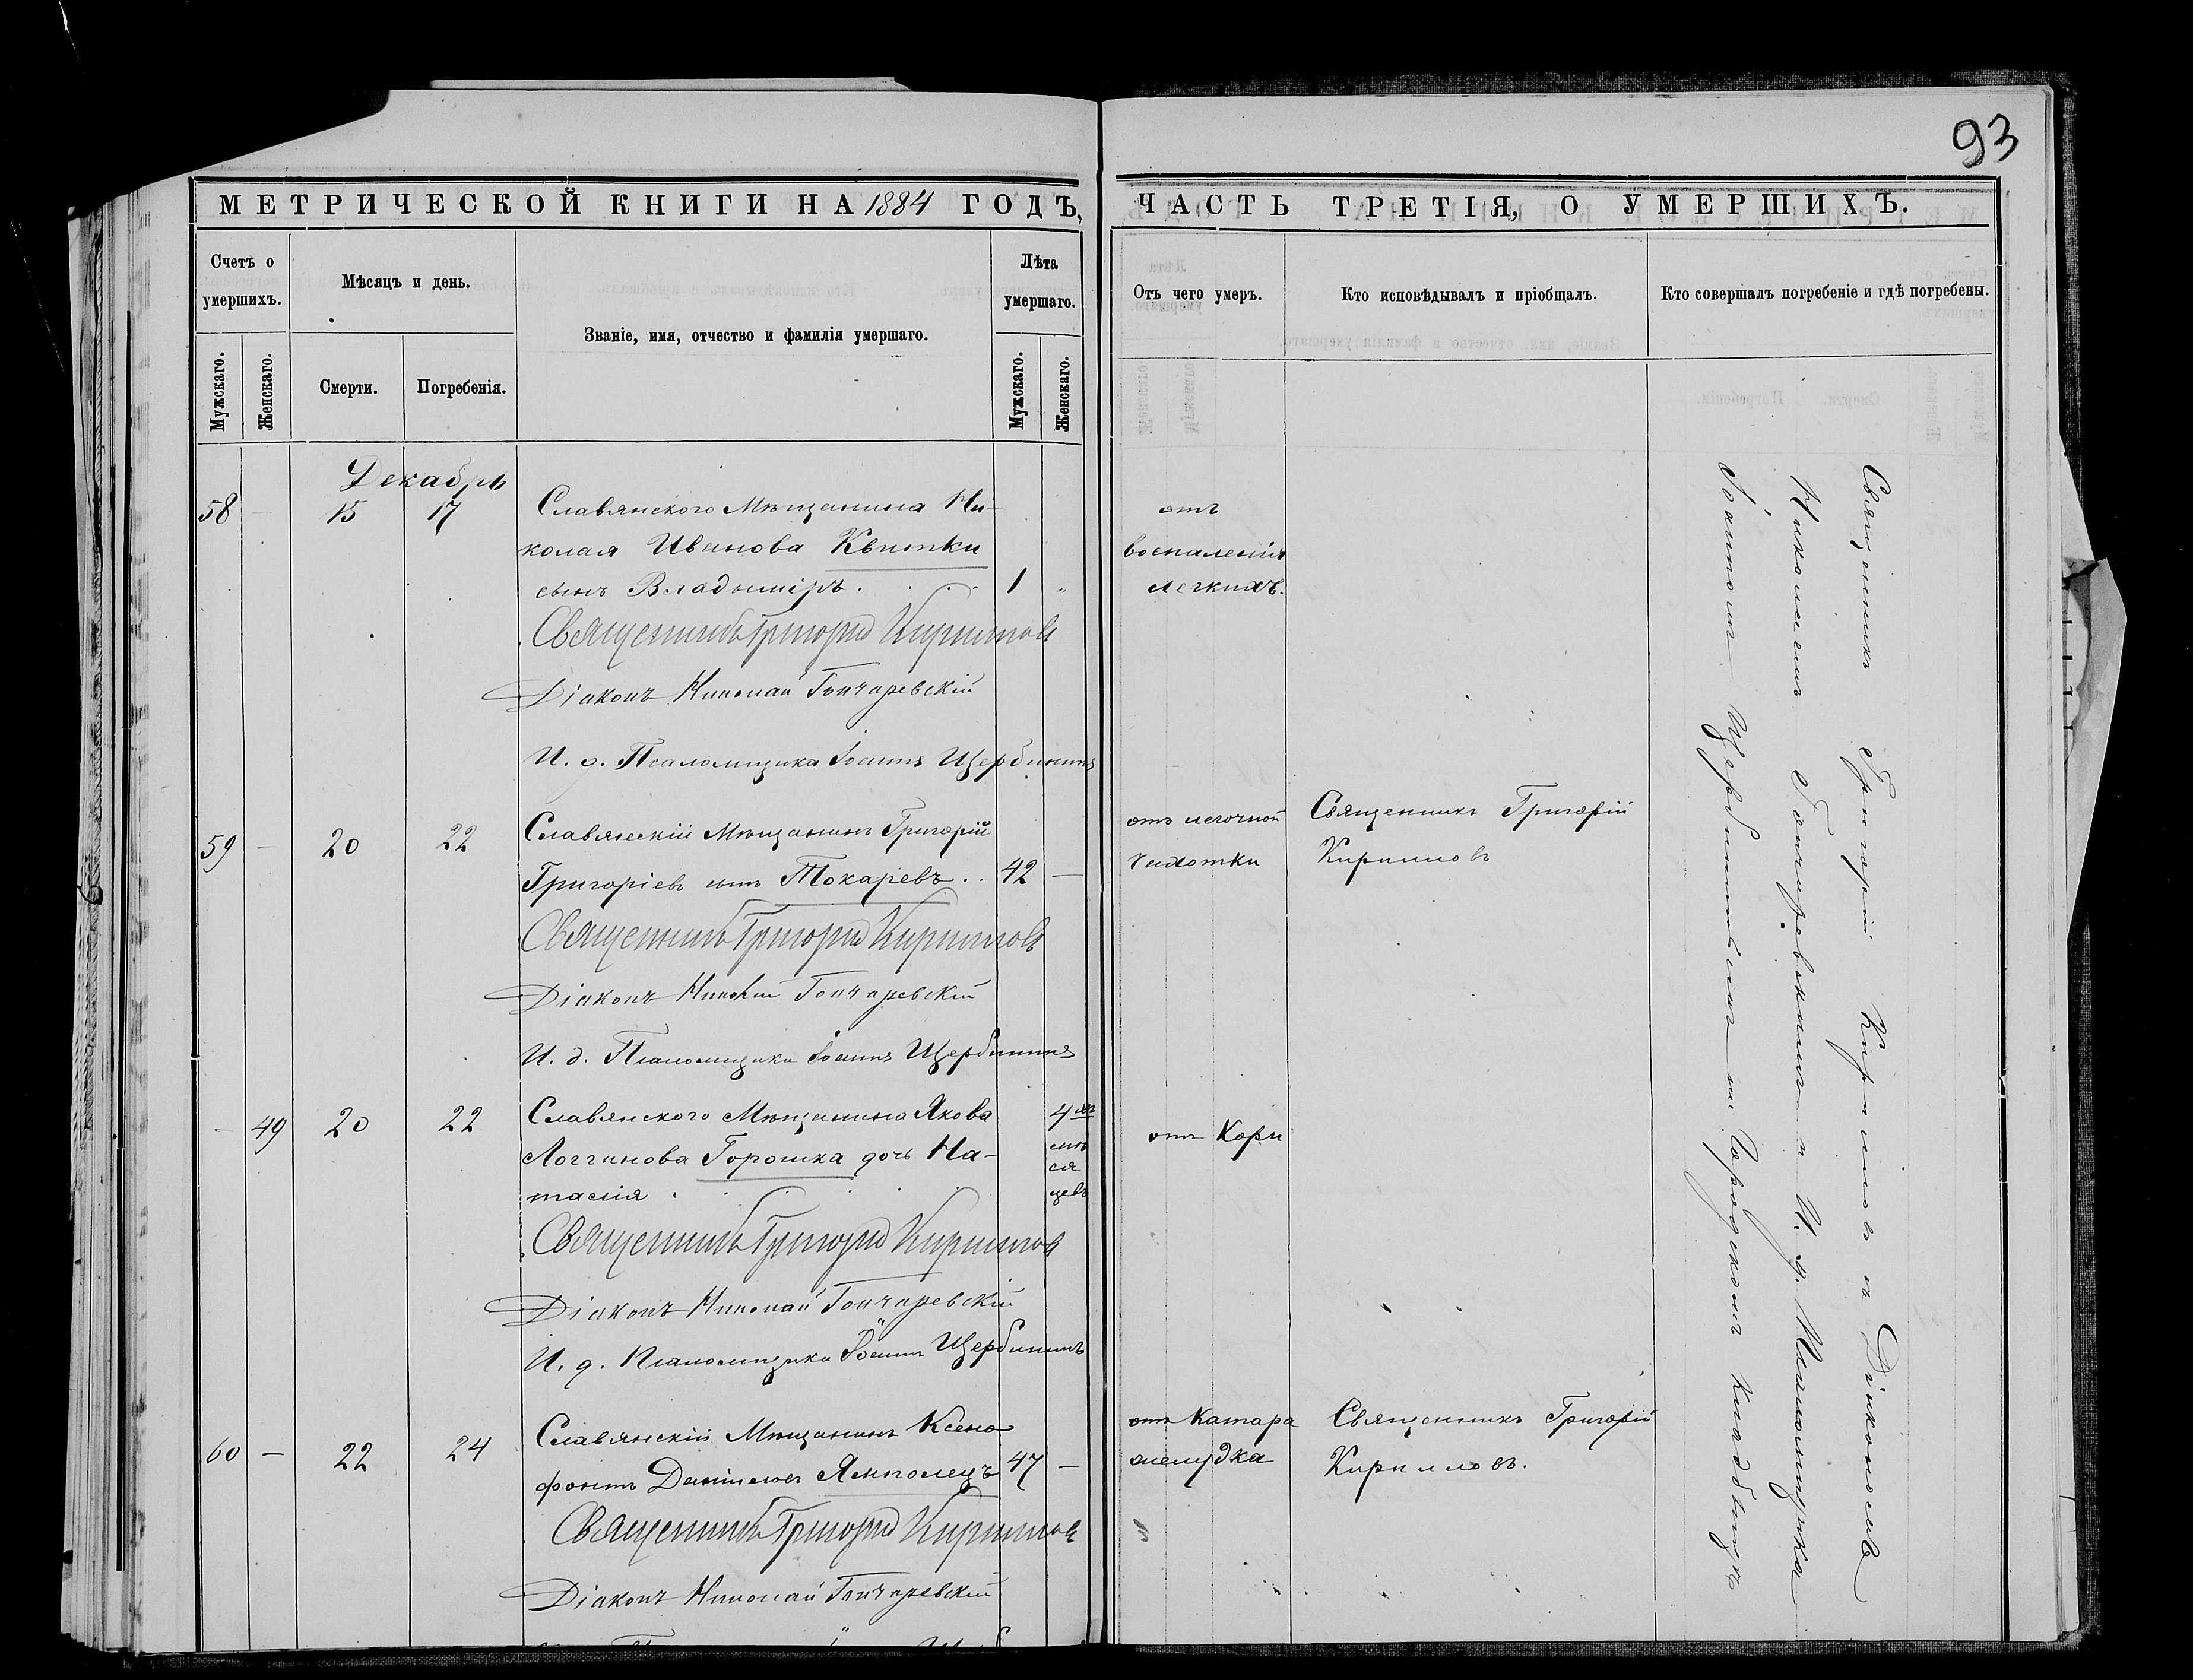 93
МЕТРИЧЕСКОЙ КНИГИ НА 1884 ГОДЪ,
Счетъ о умершихъ.
Мужскаго.
Женскаго.
Мѣсяцъ и день.
Смерти.
Погребенія.
Званіе, имя, отчество и фамилія умершаго.
Лѣта умершаго.
Мужскаго.
Женскаго.
Декабрь
58 - 15 17 Славянского Мѣщанина Ни-
колая Иванова Квитки
сынъ Владиміръ. 1 „
Священникъ Григорій Кирилловъ
Діаконъ Николай Гончаревскій
И. д. Псаломщика Іоаннъ Щербининъ
59 - 20 22 Славянскій Мѣщанинъ Григорій
Григоріевъ сынъ Токаревъ .. 42 -
Священникъ Григорій Кирилловъ
Діаконъ Николай Гончаревскій
И. д. Псаломщика Іоаннъ Щербининъ
- 49 20 22 Славянского Мѣщанина Якова
Логгинова Горошка дочь На-
талія
4
мѣ
ся
цевъ
Священникъ Григорій Кирилловъ
Діаконъ Николай Гончаревскій
И. д. Псаломщика Іоаннъ Щербининъ
60 - 22 24 Славянскій Мѣщанинъ Ксено
фонтъ Даниловъ Ямполецъ 47 -
Священникъ Григорій Кирилловъ
Діаконъ Николай Гончаревскій
ЧАСТЬ ТРЕТІЯ, О УМЕРШИХЪ.
Отъ чего умеръ.
Кто исповѣдывалъ и пріобщалъ.
Кто совершалъ погребеніе и гдѣ погребены.
отъ
воспаленія
легкихъ.
отъ легочной
чахотки
Священникъ Григорій
Кирилловъ
отъ Кори
отъ Катара
желудка
Священникъ Григорій
Кирилловъ.
Священникъ Григорій Кирилловъ съ Діакономъ
Николаемъ Гончаревскимъ и И. д. Псаломщика
Іоанномъ Щербининымъ на Городскомъ кладбищѣ